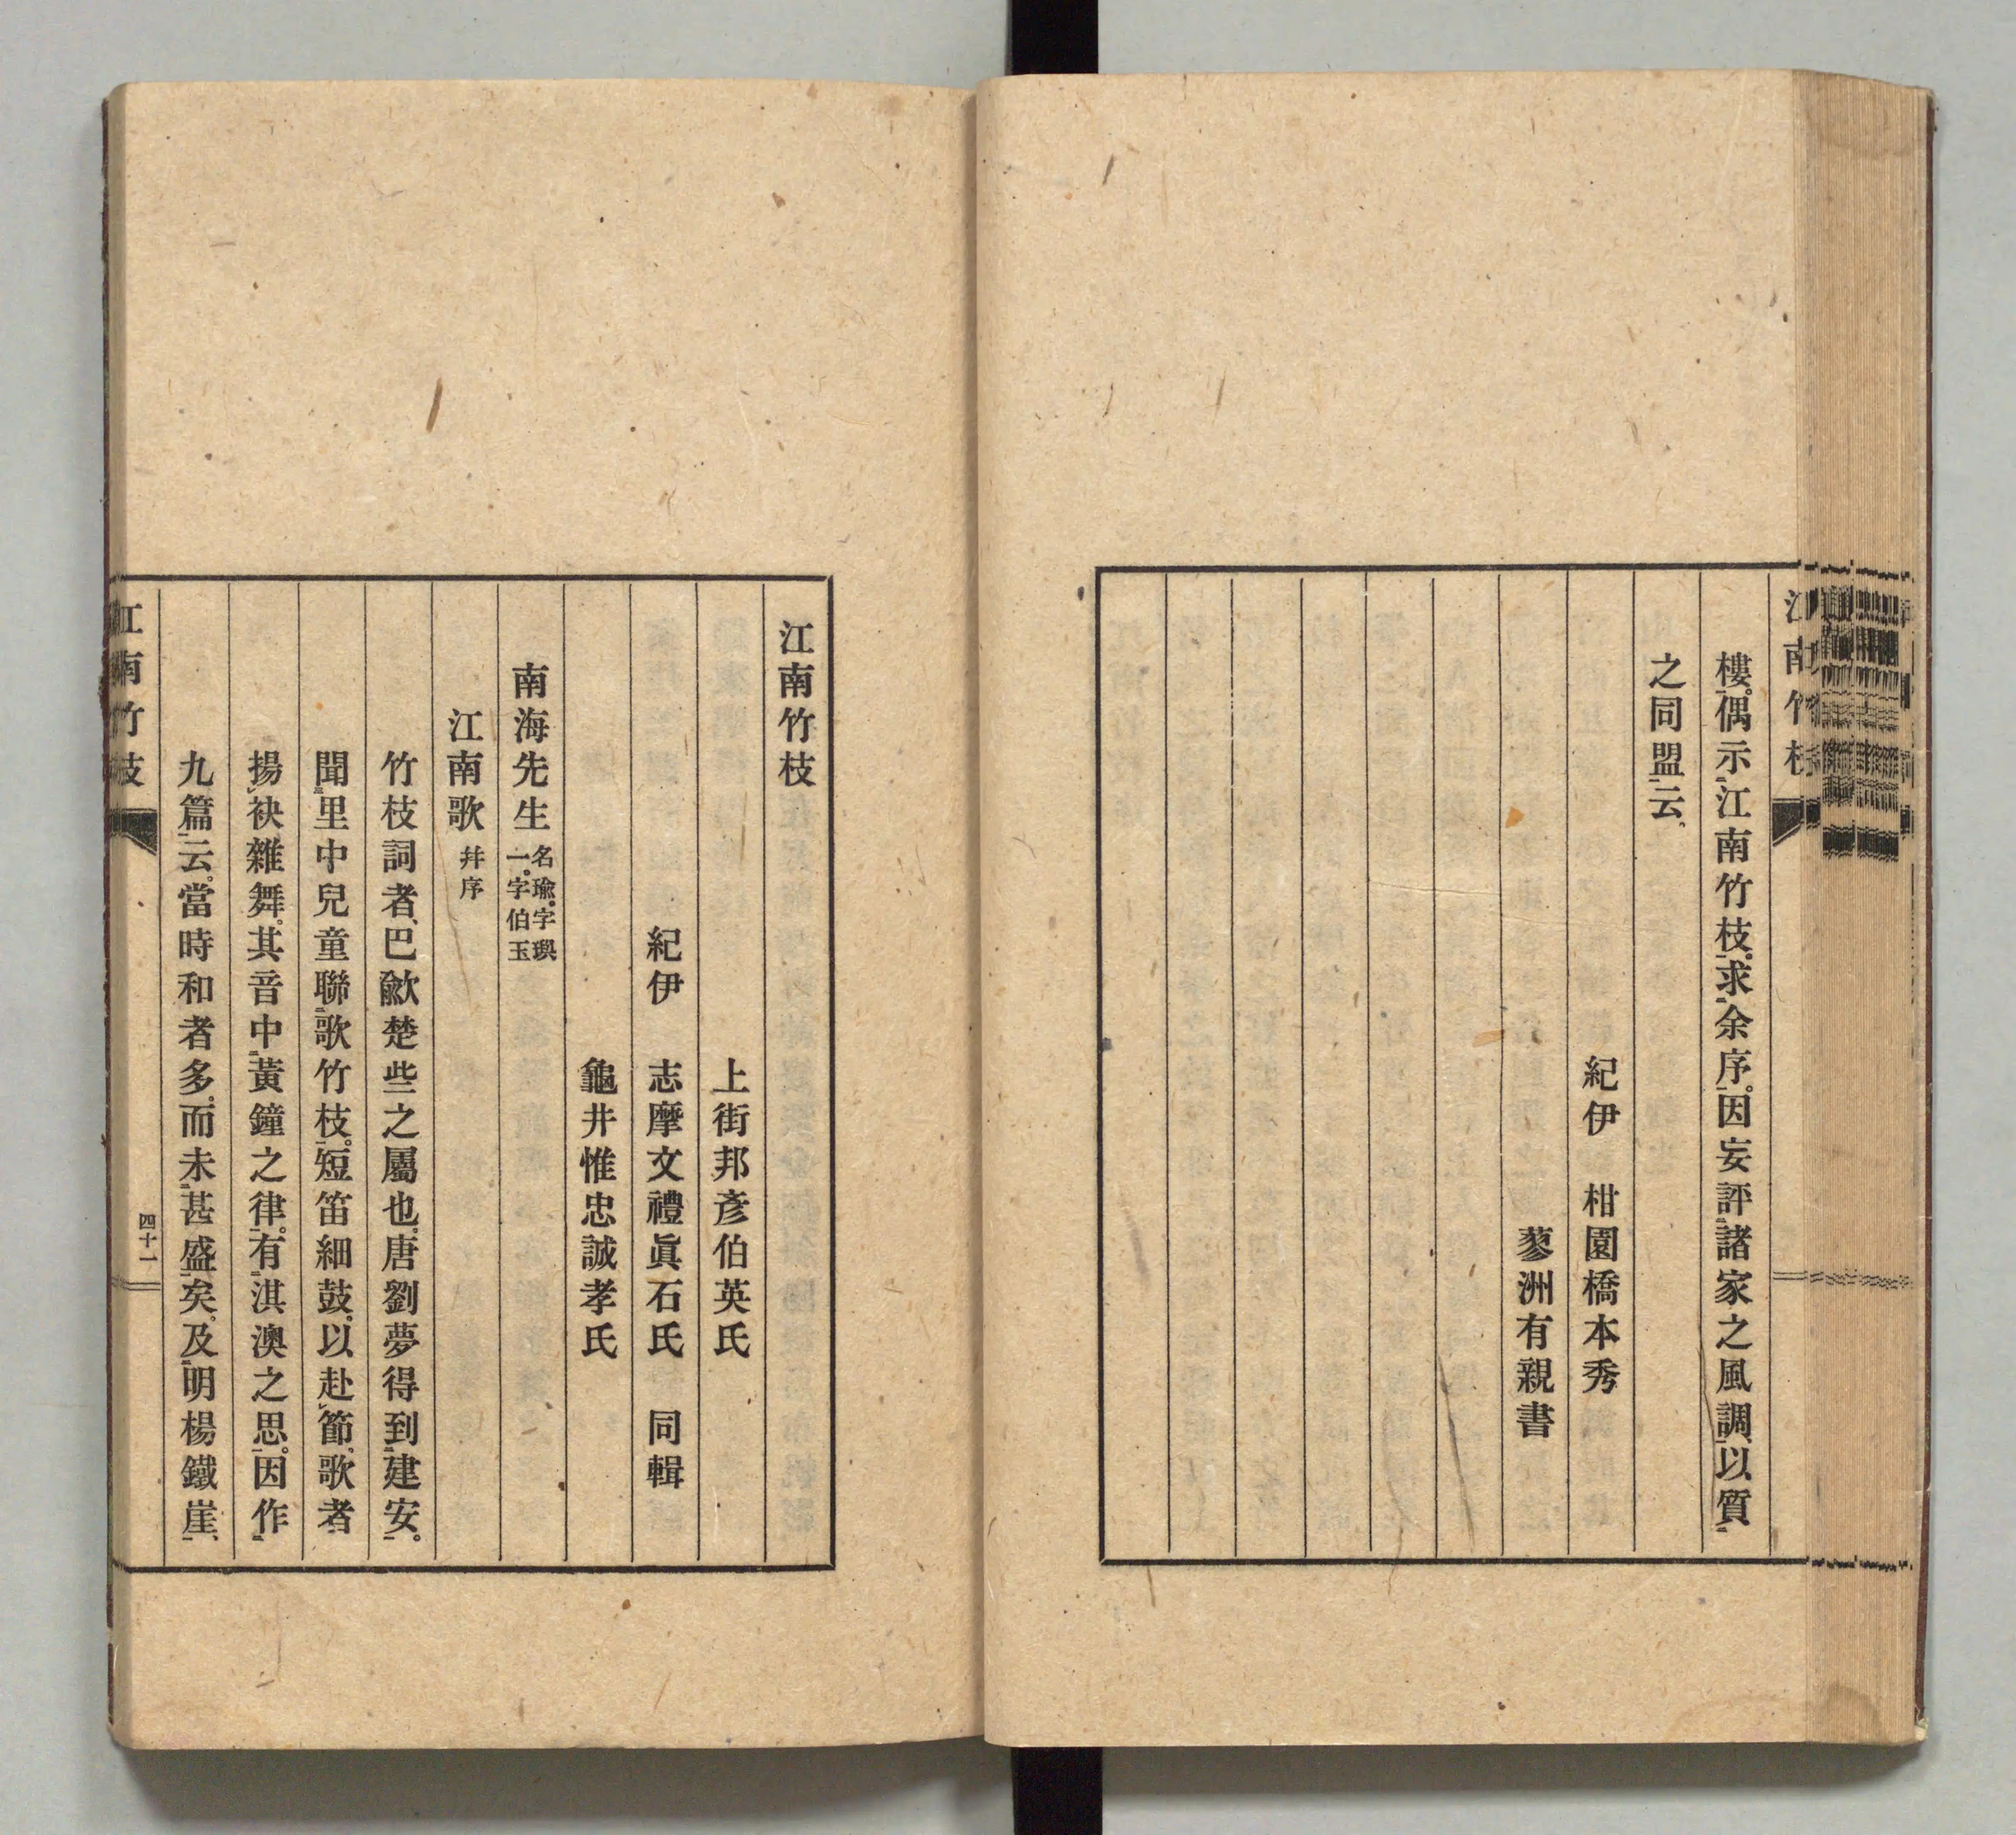 江南竹枝
樓。偶示江南竹枝。求余序。因妄評諸家之風調、以質
之同盟云。
紀伊 柑園橋本秀
蓼洲有親書
江南竹枝
上街邦彥伯英氏
紀伊 志摩文禮眞石氏 同輯
龜井惟忠誠孝氏
南海先生 名瑜。字璵
一。字伯玉
江南歌 幷序
竹枝詞者、巴歈楚些之屬也。唐劉夢得到建安。
聞里中兒童聯歌竹枝。短笛細鼓。以赴節。歌者
揚袂雜舞。其音中黃鐘之律。有淇澳之思。因作
九篇云。當時和者多。而未甚盛矣。及明楊鐵崖、
江南竹枝
四十一